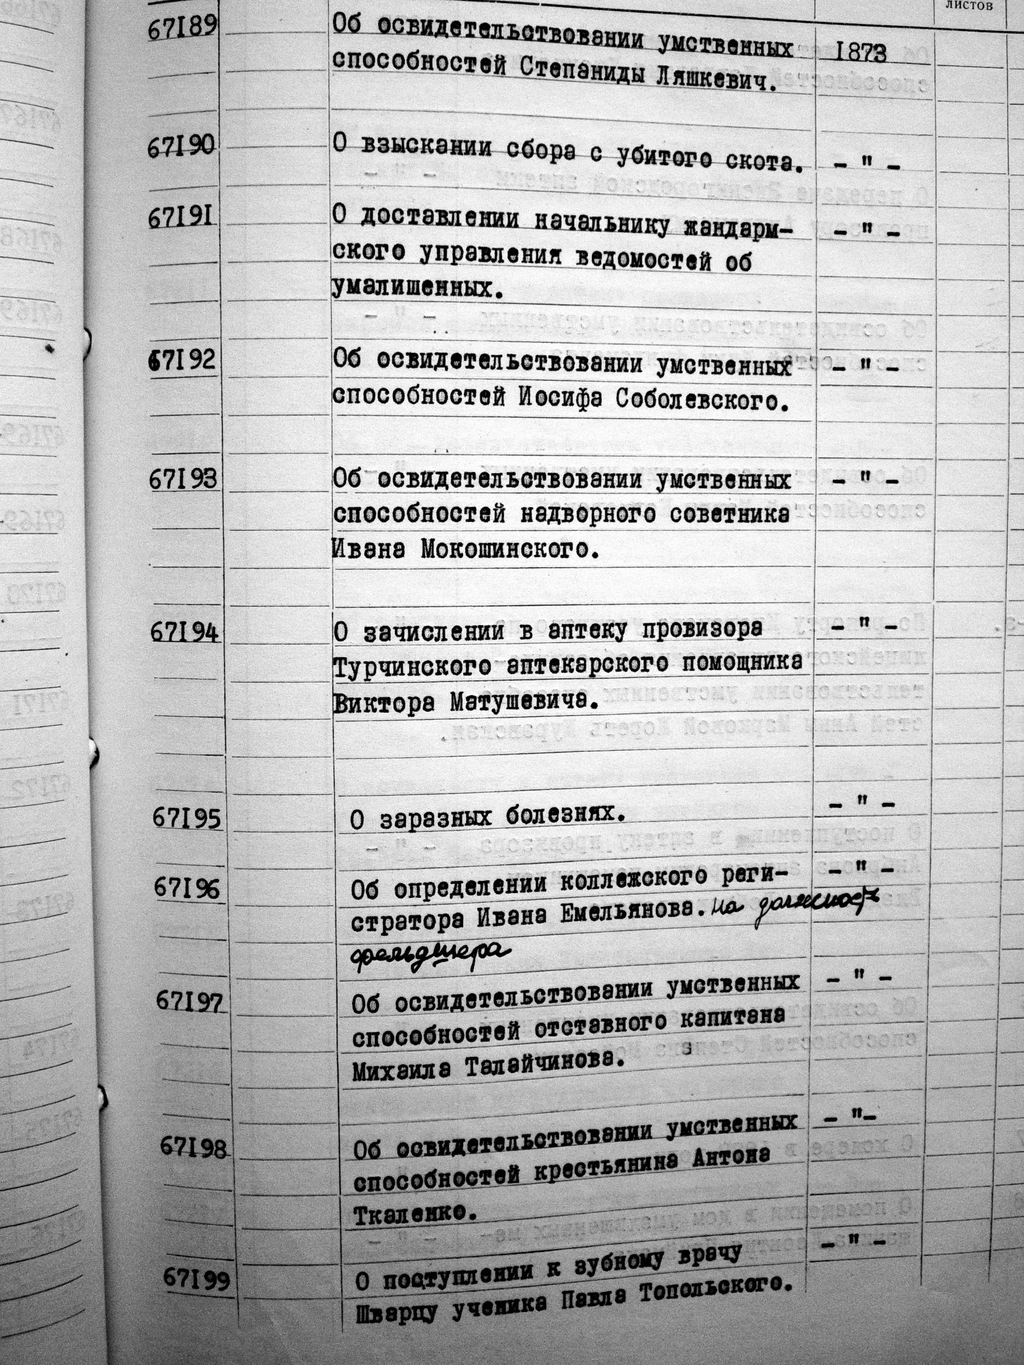 листов
67I89 Об освидетельствовании умственных I873
способностей Степаниды Ляшкевич.
67I90 О взыскании сбора с убитого скота. - " -
67I9I О доставлении начальнику жандарм- - " -
ского управления ведомостей об
умалишенных.
67I92 Об освидетельствовании умственных - " -
способностей Иосифа Соболевского.
67I93 Об освидетельствовании умственных - " -
способностей надворного советника
Ивана Мокошинского.
67I94 О зачислении в аптеку провизора - " -
Турчинского аптекарского помощника
Виктора Матушевича.
67I95 О заразных болезнях. - " -
67I96 Об определении коллежского реги- - " -
стратора Ивана Емельянова. на должность
фельдшера
67I97 Об освидетельствовании умственных - " -
способностей отставного капитана
Михаила Талайчинова.
67I98 Об освидетельствовании умственных - "-
способностей крестьянина Антона
Ткаленко.
67I99 О поступлении к зубному врачу - " -
Шварцу ученика Павла Топольского.